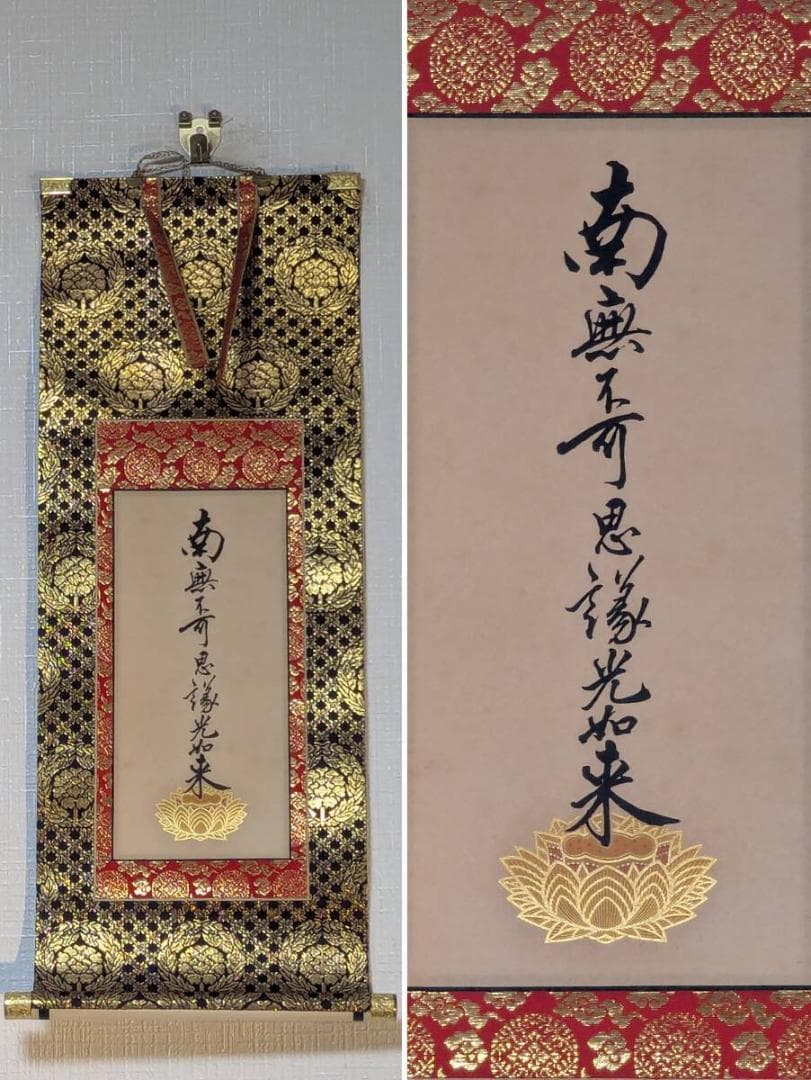 南無不可思議光如来
南無不可思議光如来